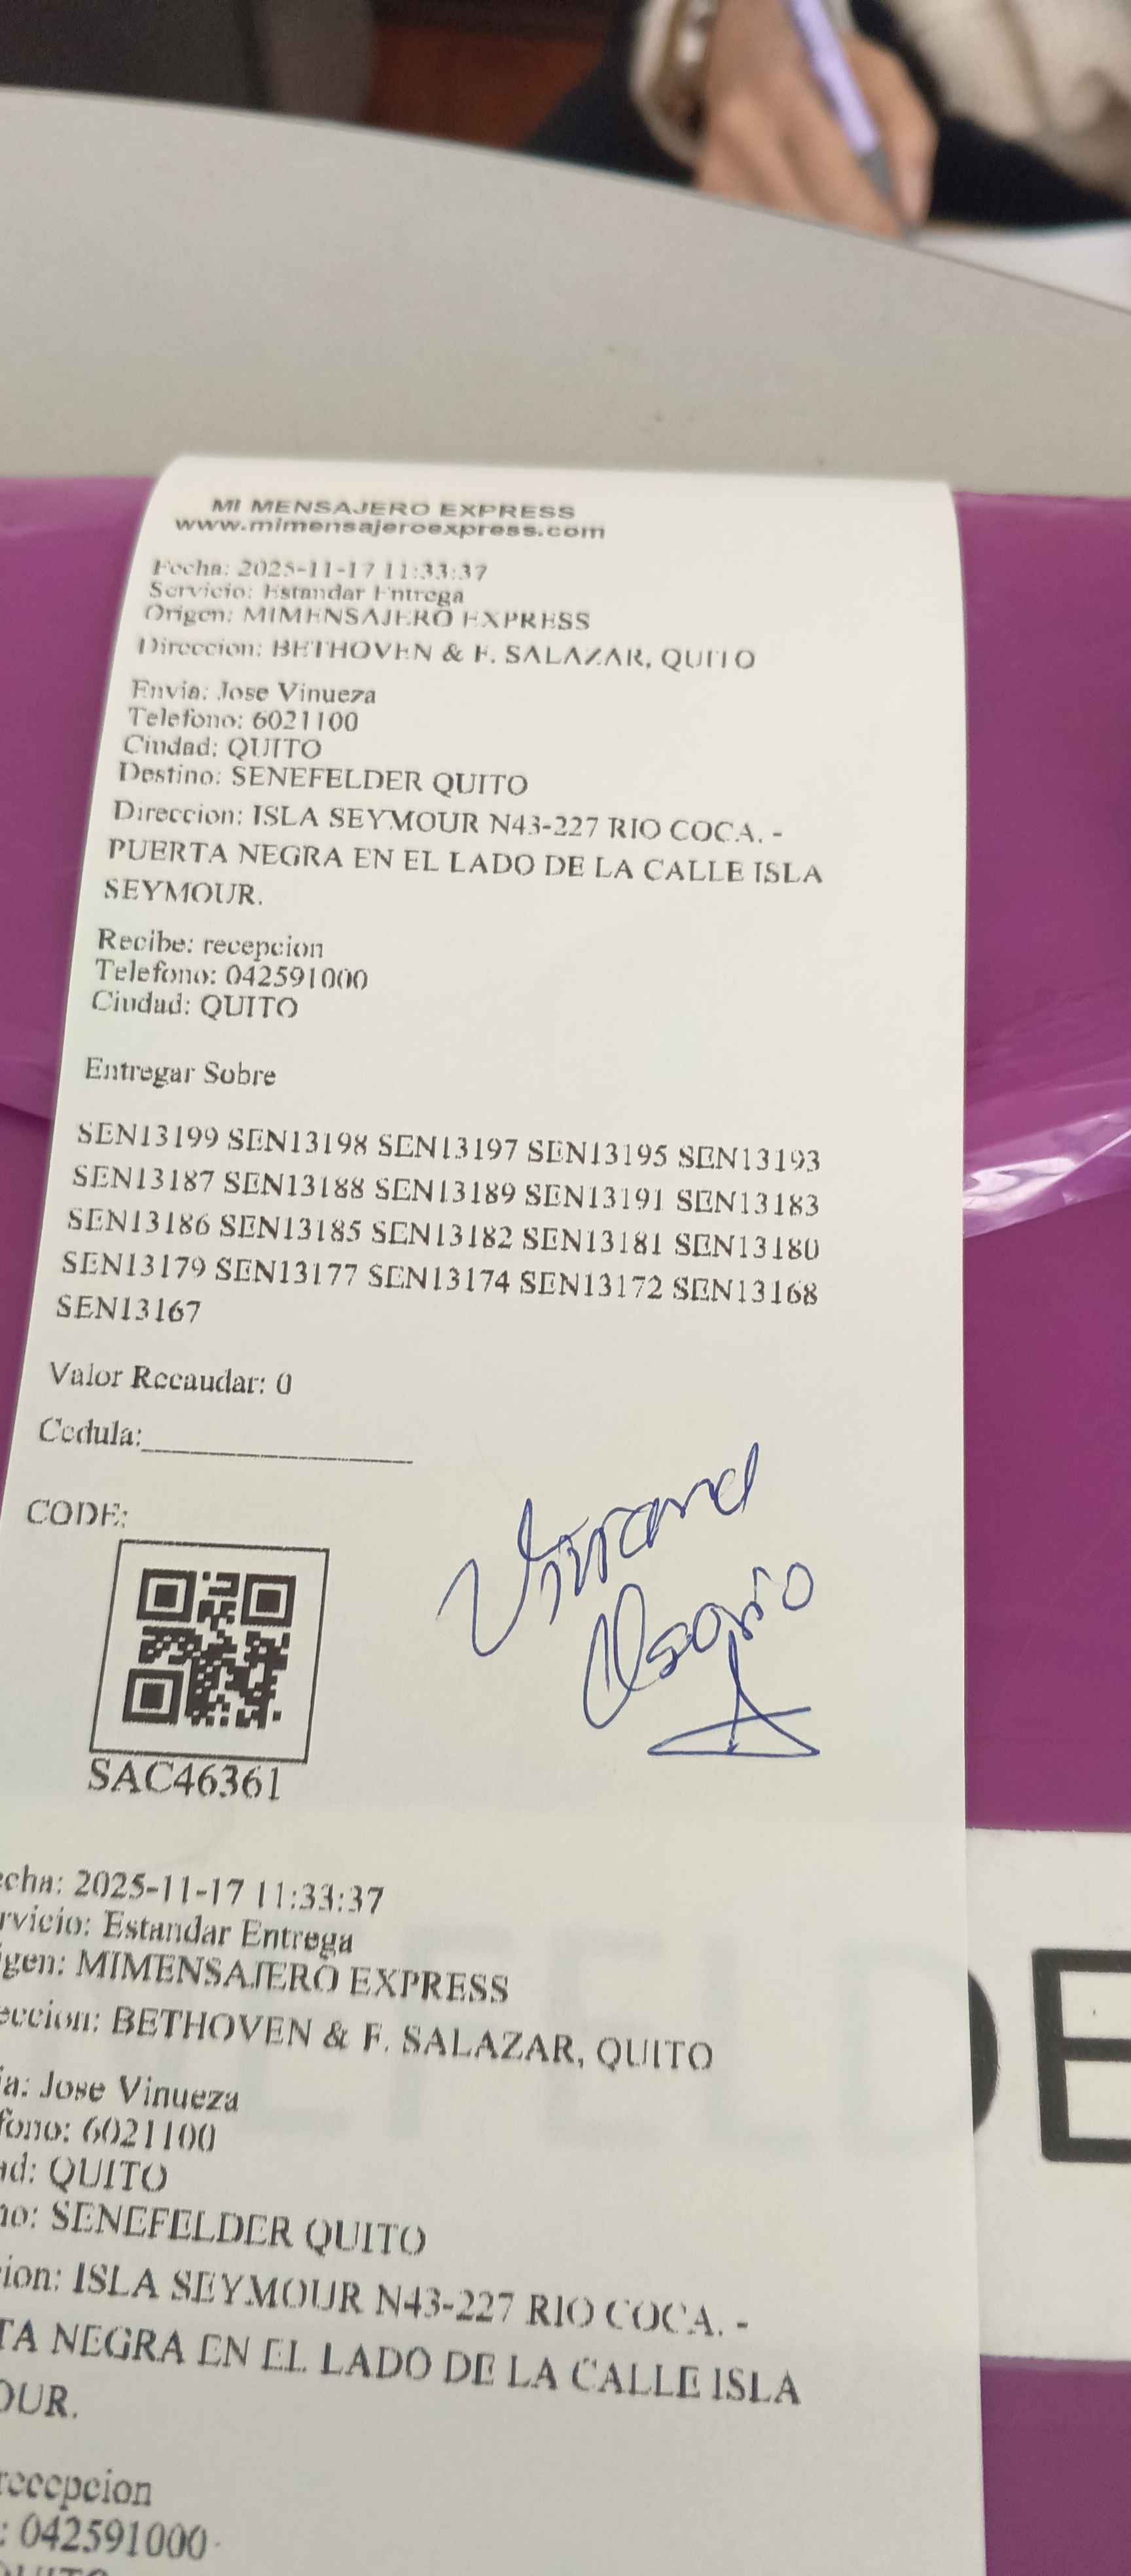 MI MENSAJERO EXPRESS
www.mimensajeroexpress.com
Fecha: 2025-11-17 11:33:37
Servicio: Estandar Entrega
Origen: MIMENSAJERO EXPRESS
Direccion: BETHOVEN & F. SALAZAR, QUITO
Envia: Jose Vinueza
Telefono: 6021100
Ciudad: QUITO
Destino: SENEFELDER QUITO
Direccion: ISLA SEYMOUR N43-227 RIO COCA. -
PUERTA NEGRA EN EL LADO DE LA CALLE ISLA
SEYMOUR.
Recibe: recepcion
Telefono: 042591000
Ciudad: QUITO
Entregar Sobre
SEN13199 SEN13198 SEN13197 SEN13195 SEN13193
SEN13187 SEN13188 SEN13189 SEN13191 SEN13183
SEN13186 SEN13185 SEN13182 SEN13181 SEN13180
SEN13179 SEN13177 SEN13174 SEN13172 SEN13168
SEN13167
Valor Recaudar: 0
Cedula:
CODE:
SAC46361
echa: 2025-11-17 11:33:37
rvicio: Estandar Entrega
gen: MIMENSAJERO EXPRESS
eccion: BETHOVEN & F. SALAZAR, QUITO
ia: Jose Vinueza
fono: 6021100
ad: QUITO
no: SENEFELDER QUITO
cion: ISLA SEYMOUR N43-227 RIO COCA. -
TA NEGRA EN EL LADO DE LA CALLE ISLA
OUR.
recepcion
: 042591000
QUITO
DE